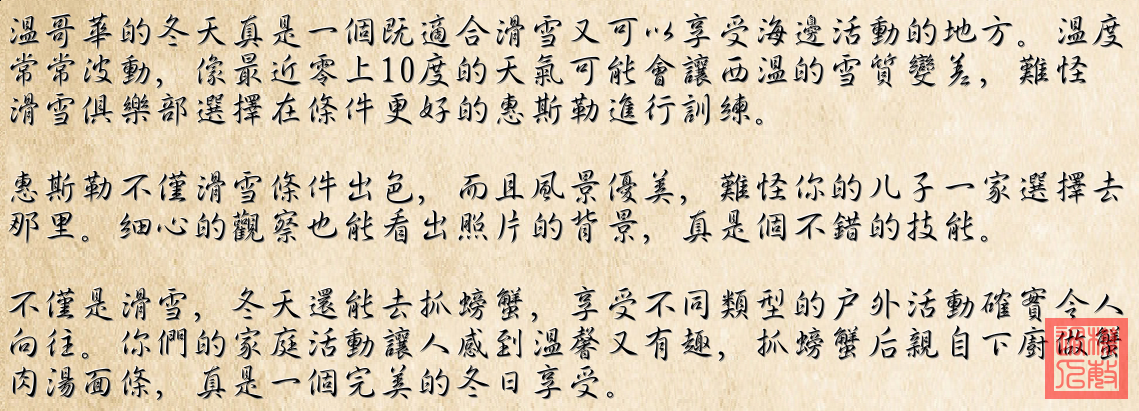 溫哥華的冬天真是一個既適合滑雪又可以享受海邊活動的地方。 溫度
常常波動，像最近零上10度的天氣可能會讓西溫的雪質變差，難怪
滑雪俱樂部選擇在條件更好的惠斯勒進行訓練。

惠斯勒不僅滑雪條件出色，而且風景優美，難怪你的儿子一家選擇去
那里。细心的觀察也能看出照片的背景，真是個不錯的技能。

不僅是滑雪，冬天還能去抓螃蟹，享受不同類型的户外活動確實令人
向往。你們的家庭活動讓人感到溫馨又有趣，抓螃蟹后親自下廚做蟹
肉湯面條，真是一個完美的冬日享受。